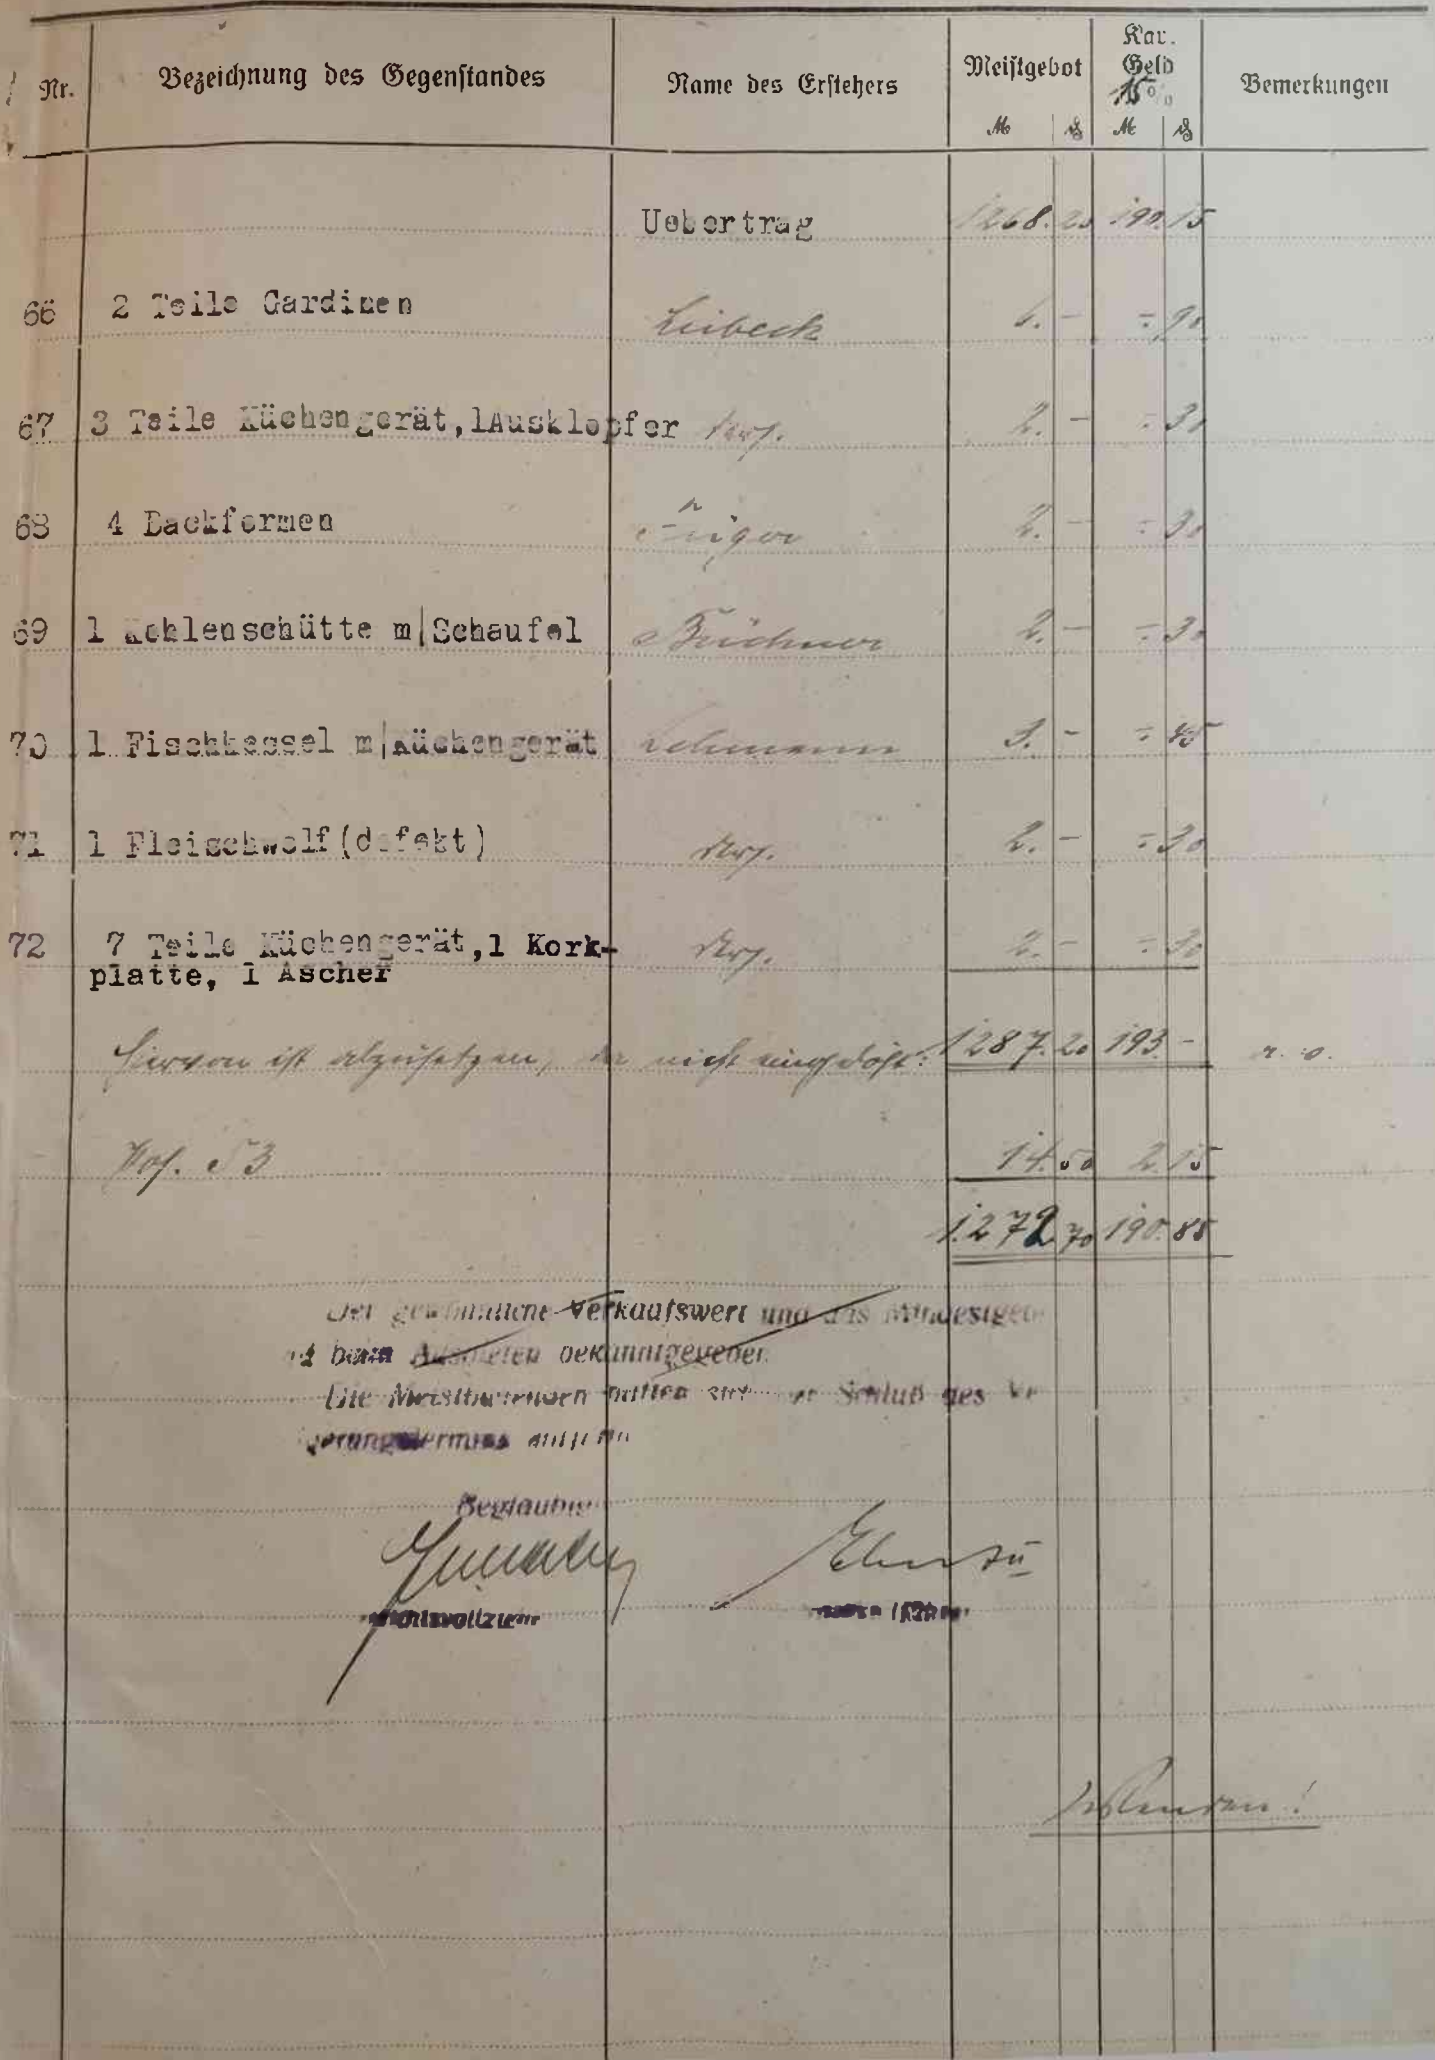 Nr. Bezeichnung des Gegenstandes Name des Erstehers Meistgebot Kav. Geld 15% Bemerkungen
M ₰ M ₰
Uebertrag 1268.20 190.15
66 2 Teile Gardinen Leibeck 6.- -.90
67 3 Teile Küchengerät,1Ausklopfer ders. 2.- -.30
68 4 Backformen 2.- -.30
69 1 Kohlenschütte m/Schaufel Büchner 2.- -.30
70 1 Fischkessel m/Küchengerät Lehmann 3.- -.45
71 1 Fleischwolf(defekt) ders. 2.- -.30
72 7 Teile Küchengerät,1 Kork- ders. 2.- -.30
platte, 1 Ascher
hiervon ist abzusetzen, da nicht eingelöst: 1287.20 193.-
Pos. 53 14.50 2.15
1.272.70 190.85
Der gewöhnliche Verkaufswert und das Mindestgebot
beim Ausbieten bekanntgegeben
Die Meistbietenden hatten sich Schluß des
Beglaubigt
Wenden!